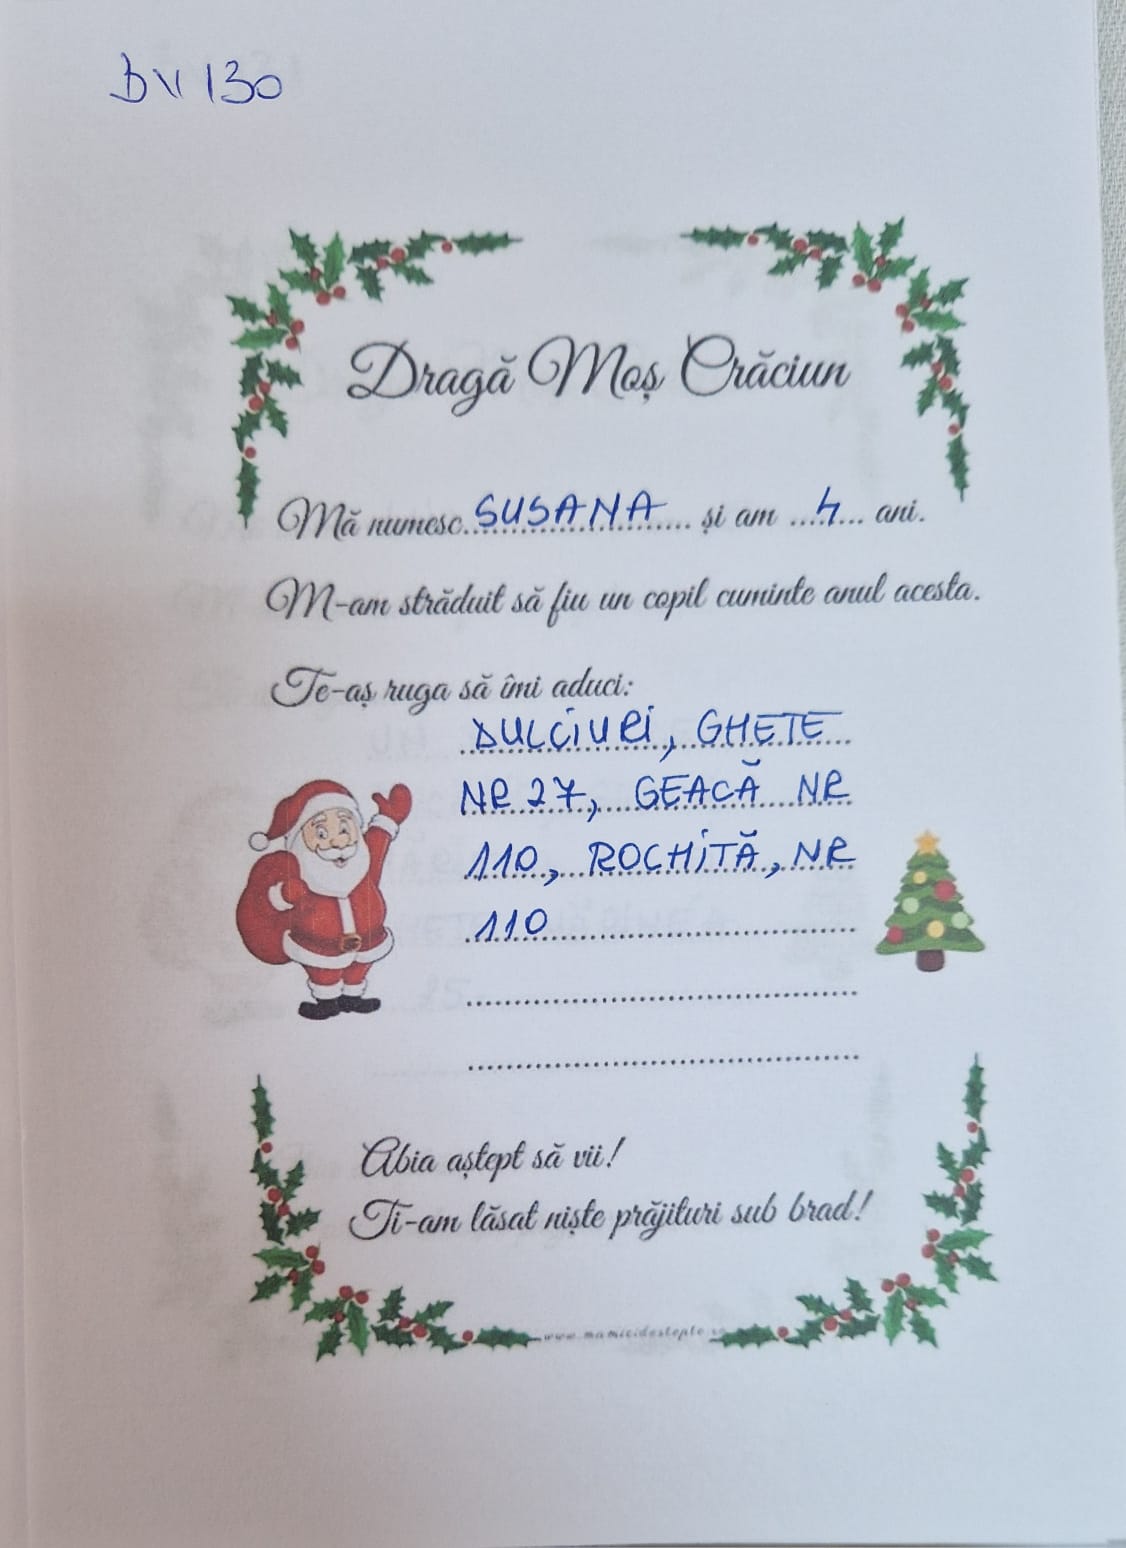 BV 130
Dragă Moș Crăciun
Mă numesc SUSANA și am 4 ani.
M-am străduit să fiu un copil cuminte anul acesta.
Te-aș ruga să îmi aduci:
DULCIURI, GHETE
NR 27, GEACĂ NR
110, ROCHITĂ, NR
110
Abia aștept să vii!
Ti-am lăsat niște prăjituri sub brad!
www.mamicidestepte.ro